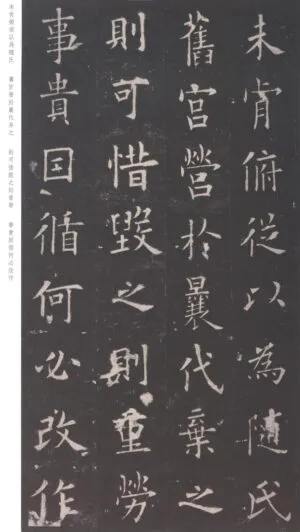 未肯俯從以為隨氏
舊宮營扵曩代棄之
則可惜毀之則重勞
事貴因循何必改作
未肯俯從以為隨氏　舊宮營於曩代棄之　則可惜毀之則重勞　事貴因循何必改作